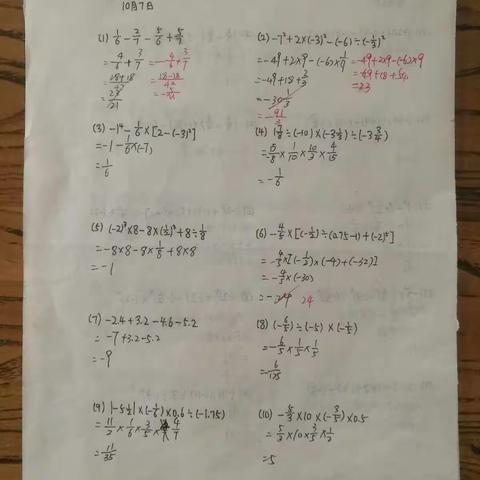 10月7日
(1) 1/6 - 2/7 - 5/6 + 5/7
= 4/6 + 3/7 = -4/6 + 3/7
= 28+18/42 = 18-28/42
= 23/21 = -5/21
(2) -7² + 2×(-3)² - (-6) ÷ (-1/3)²
= -49 + 2×9 - (-6)×1/9 = -49 + 2×9 - (-6)×9
= -49 + 18 + 2/3 = -49 + 18 + 54
= -30 1/3 = 23
= -91/3
(3) -1⁴ - 1/6 × [2 - (-3)²]
= -1 - 1/6 × (-7)
= 1/6
(4) 1 7/8 ÷ (-10) × (-3 1/3) ÷ (-3 3/4)
= 15/8 × 1/10 × 10/3 × 4/15
= -1/6
(5) (-2)³ × 8 - 8 × (1/2)³ + 8 ÷ 1/8
= -8×8 - 8 × 1/8 + 8×8
= -1
(6) -4/5 × [(-1/2) ÷ (0.75-1) + (-2)⁵]
= -4/5 × [(-1/2) × (-4) + (-32)]
= -4/5 × (-30)
= -24 24
(7) -2.4 + 3.2 - 4.6 - 5.2
= -7 + 3.2 - 5.2
= -9
(8) (-6/5) ÷ (-5) × (-1/5)
= -6/5 × 1/5 × 1/5
= -6/125
(9) |-5 1/2| × (-1/6) × 0.6 ÷ (-1.75)
= 11/2 × 1/6 × 3/5 × 4/7
= 11/35
(10) -5/3 × 10 × (-3/5) × 0.5
= 5/3 × 10 × 3/5 × 1/2
= 5